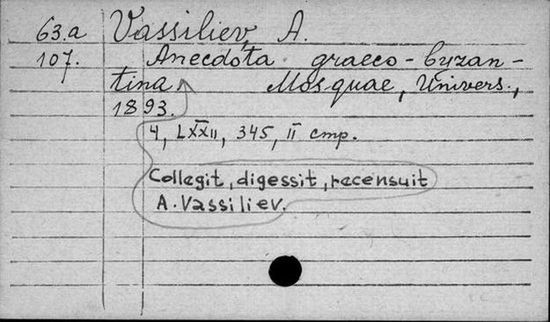 63.a Vassiliev, A.
107. Anecdota graeco-byzan-
tina Mosquae, Univers.,
1893.
4, LXXII, 345, II cmp.
Collegit, digessit, recensuit
A. Vassiliev.